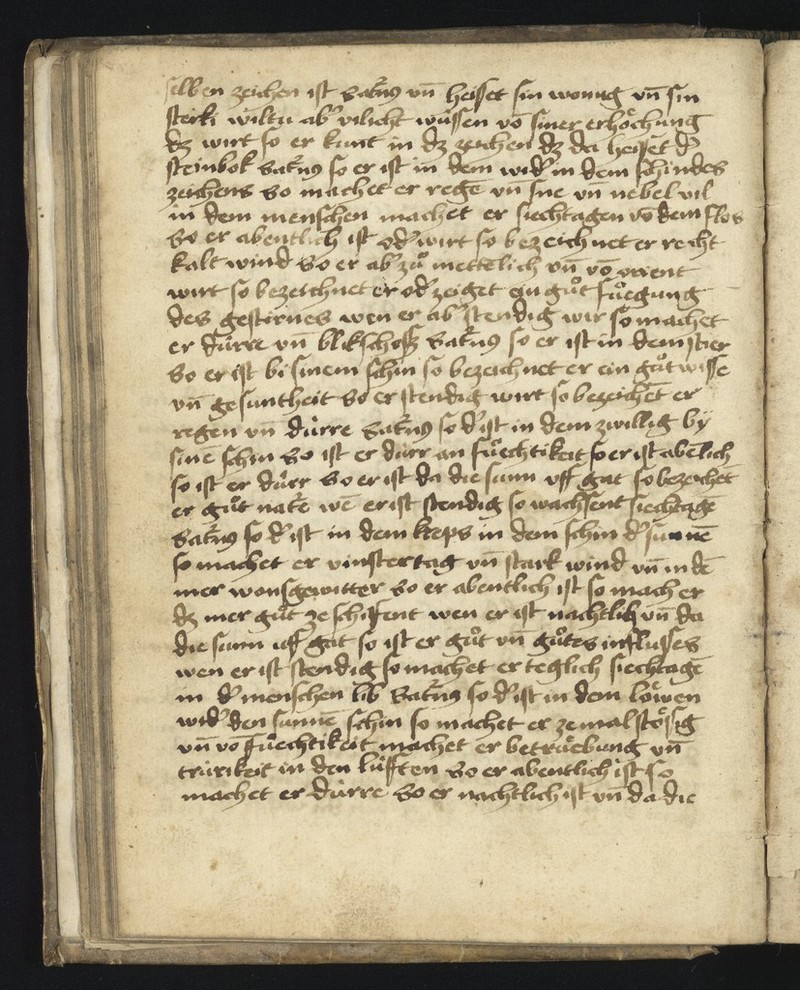 selben zeichen ist Satn̄9 vn̄ heisset sin wonūg vn̄ sin
sterki wiltu ab͛ vilicht wússen vō siner erhöchung
dz wirt so er kunt in dz zeichen dz da heisset d͛
steinbok Satn̄9 so er ist in dem wid͛ in dem schin des
zeichens So machet er regē vn̄ sne vn̄ nebel vil
in dem menschen machet er siechtagen vō dem flos
So er abentlich ist od͛ wirt so bezeichnet er recht
kalt wind So er ab͛ zuͦ mettēlich vn̄ vō orient
wirt so bezeichnet er od͛ zeiget ein guͦt fuͤegung
des gestirnes wen er ab͛ stendig wir so machet
er dúrre vn̄ blikschosz Satn̄9 so er ist in dem stier
So er ist bi sinem schin so bezeichnet er ein guͦt wisse
vn̄ gesuntheit So er stendig wirt so bezeichēt er
regen vn̄ dúrre Satn̄9 so d͛ ist in dem zwillig by
sinē schin So ist er dúrr an fuͤechtikeit so er ist abētlich
so ist er dúrr So er ist da die sunn vff gat so bezeichēt
er guͦt natē wē er ist stendig so wachsent siechtagē
Satn̄9 so d͛ ist in dem kreps in dem schin d͛ sunnē
so machet er vinster tag vn̄ stark wind vn̄ in dē
mer wonsgewitter So er abentlich ist so mach er
dz mer guͦt ze schiffent wen er ist nachtlich vn̄ da
die sunn uff gat so ist er guͦt vn̄ guͦtes influsses
wen er ist stendig so machet er teglich siechtagē
in d͛ menschen lib Satn̄9 so d͛ ist in dem löwen
wid͛ den sunnē schin so machet er zemal stösig
vn̄ vō fuͤechtikeit machet er betruͤebung vn̄
trúrikeit in den lúfften So er abentlich ist so
machet er dúrre So er nachtlich ist vn̄ da die